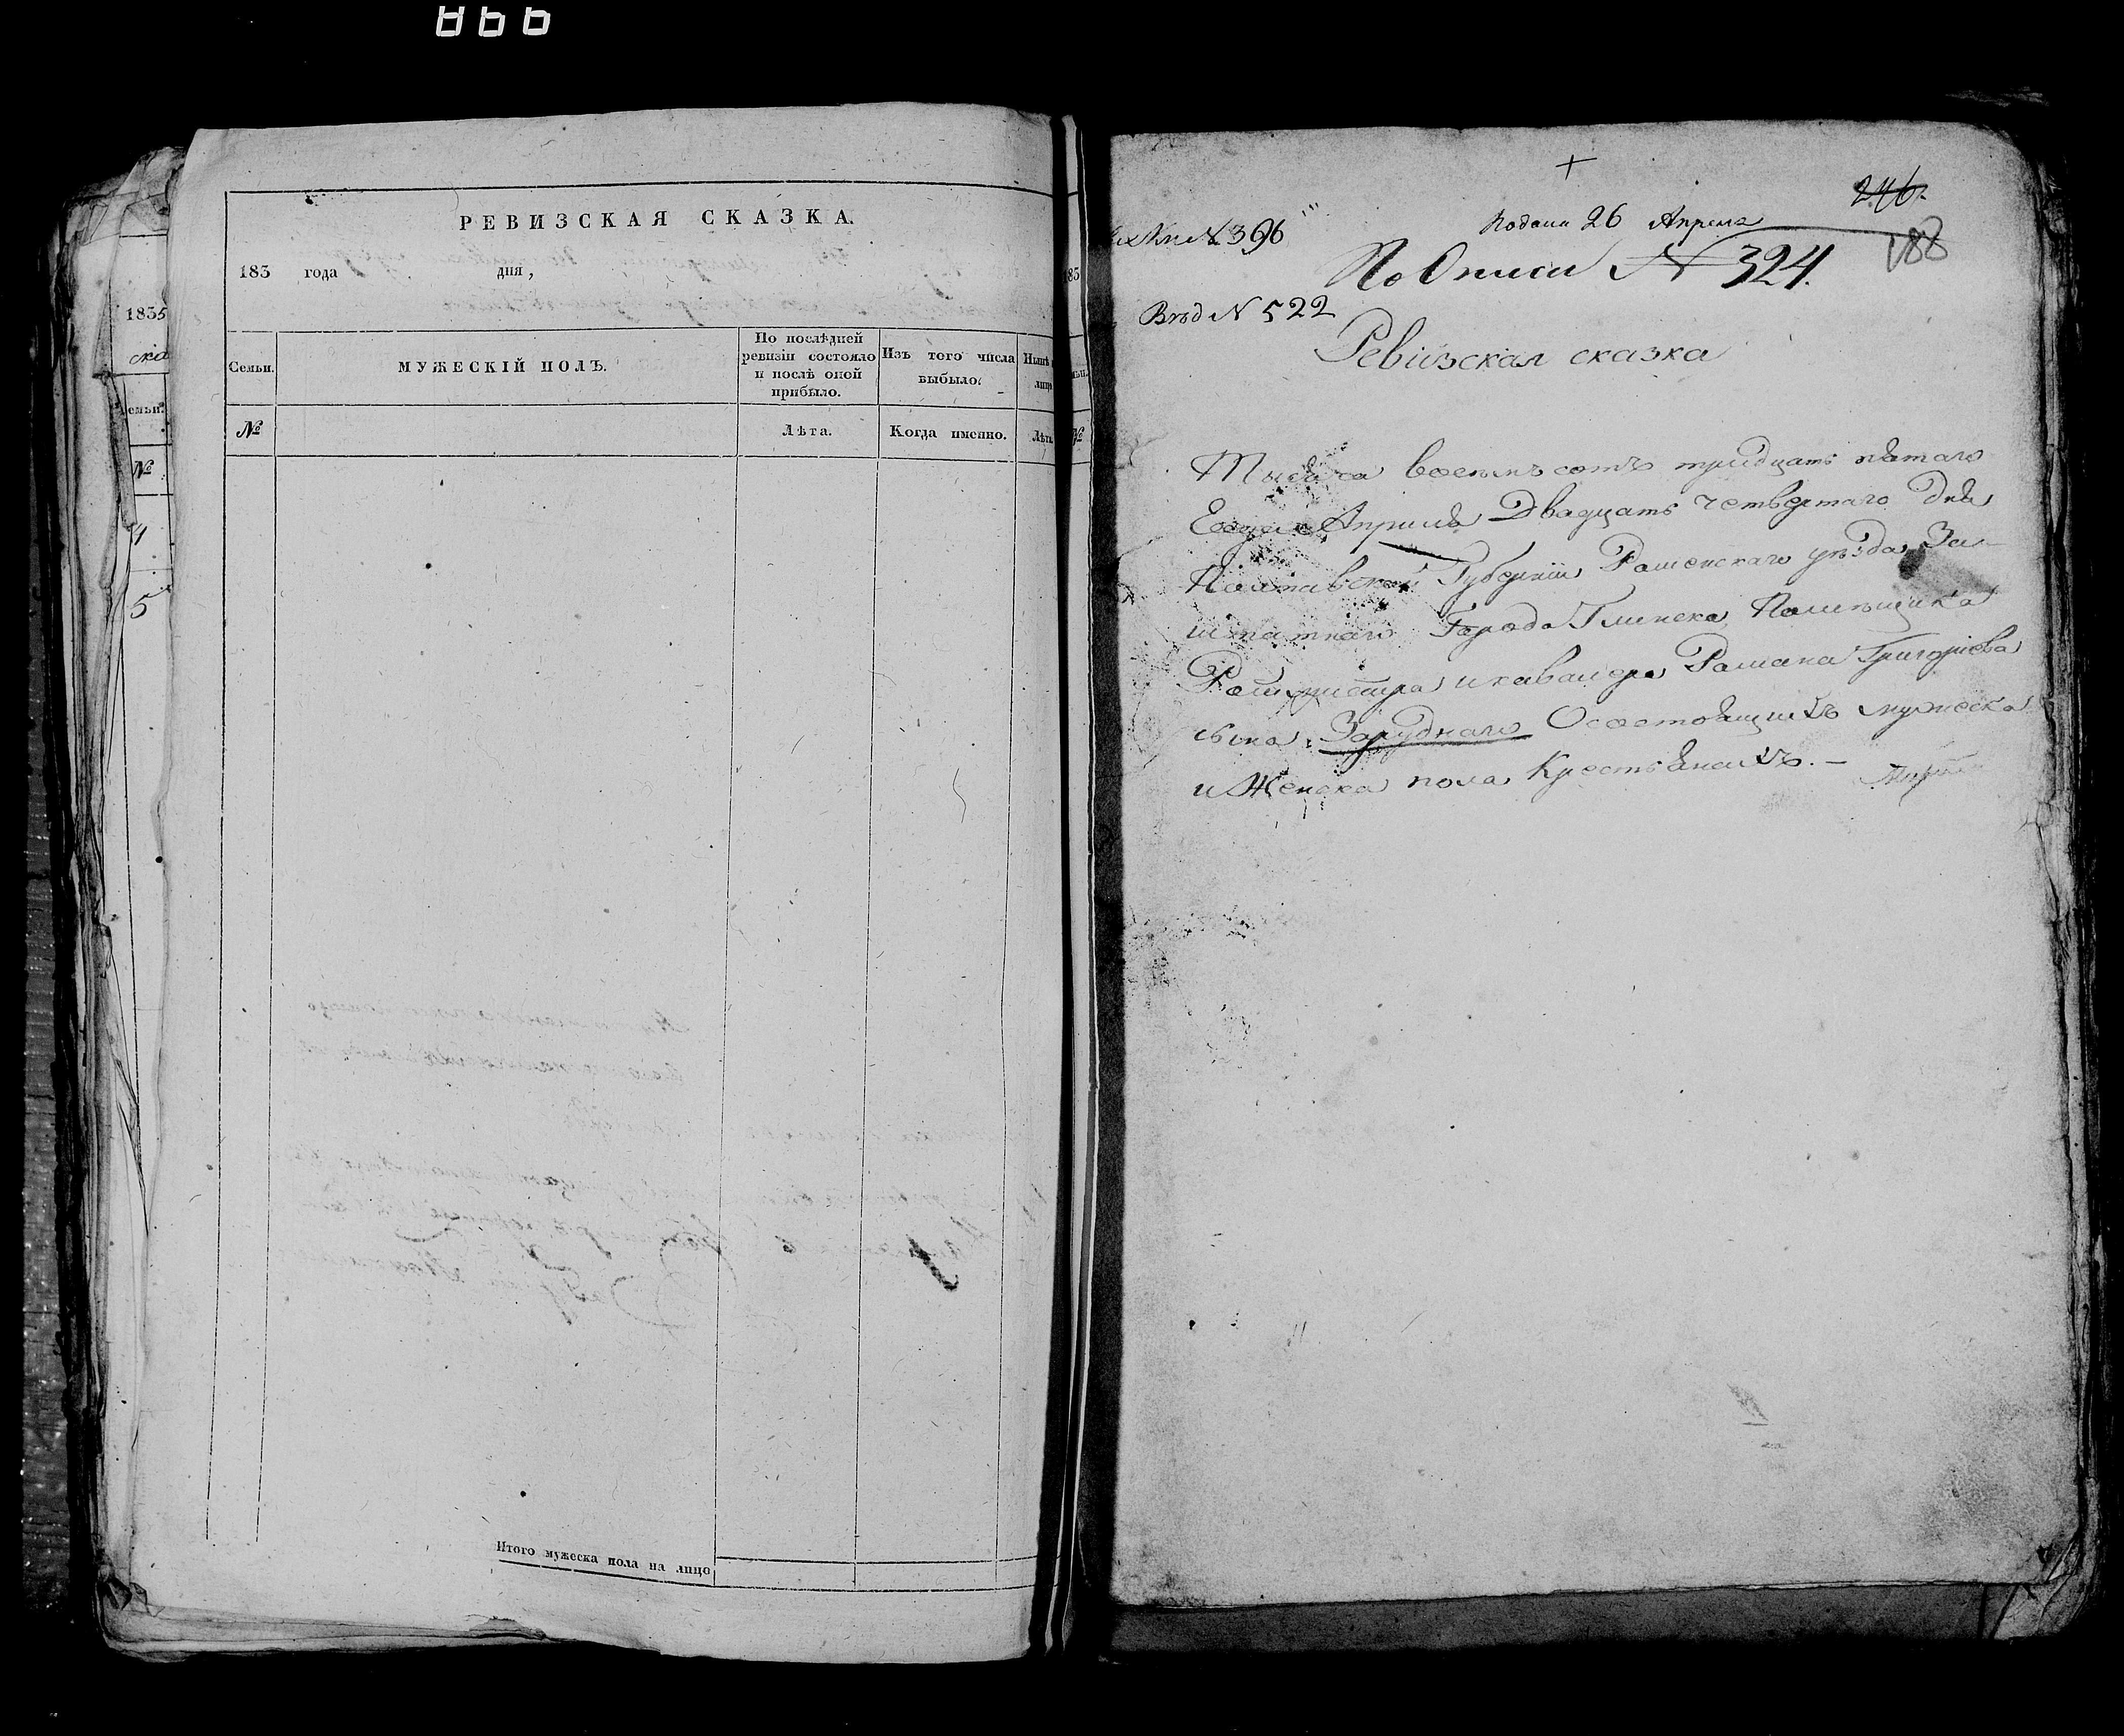 866
РЕВИЗСКАЯ СКАЗКА.
183 года дня,
Семьи. МУЖЕСКІЙ ПОЛЪ. По послѣдней ревизіи состояло и послѣ оной прибыло. Изъ того числа выбыло. Нынѣ лицо
№ Лѣта. Когда именно. Лѣта.
Итого мужеска пола на лицо
1835
ска
емьи.
№
4
5
246.
188
Подана 26 Апреля
№ 396
По Описи № 324.
Вход № 522
Ревизская сказка
Тысяча восемъ сотъ тридцать пятаго
Года Апреля Двадцать четвертаго Дня
Полтавской Губерніи Роменскаго уѣзда За-
штатнаго Города Глинска Помѣщика
Ротмистра и кавалера Романа Григоріева
сына Заруднаго О состоящихъ мужеска
и Женска пола Крестьянахъ. –